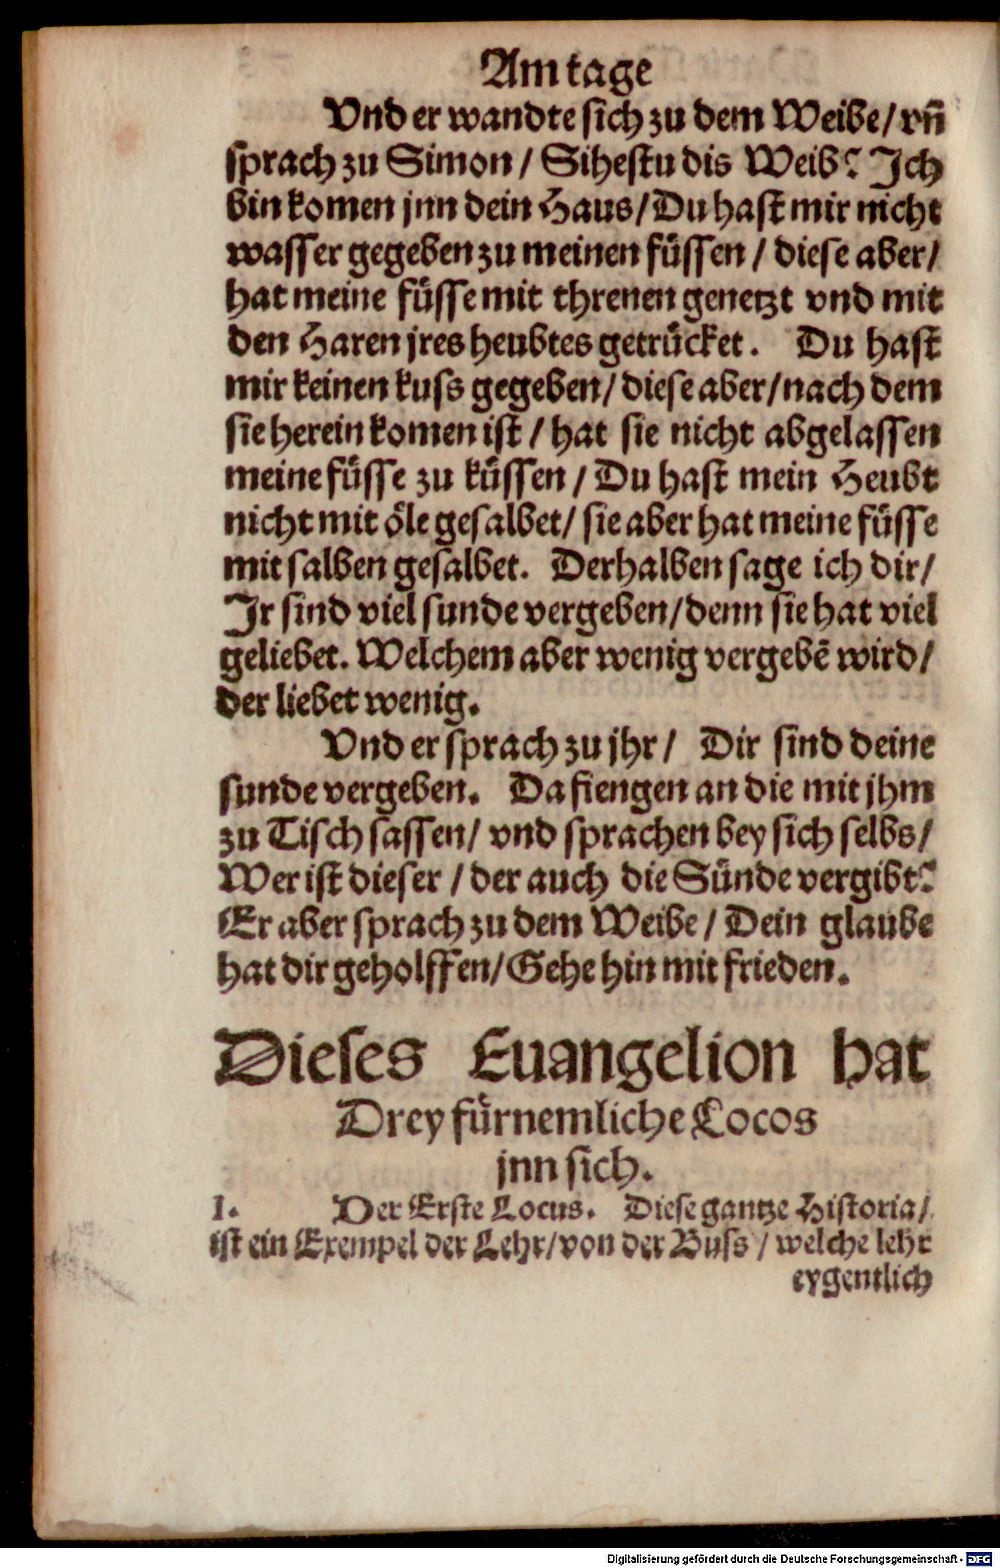 Am tage
Vnd er wandte sich zu dem Weibe / vñ
sprach zu Simon / Sihestu dis Weib? Ich
bin komen jnn dein Haus / Du hast mir nicht
wasser gegeben zu meinen füssen / diese aber /
hat meine füsse mit threnen genetzt vnd mit
den Haren jres heubtes getrücket. Du hast
mir keinen kuss gegeben / diese aber / nach dem
sie herein komen ist / hat sie nicht abgelassen
meine füsse zu küssen / Du hast mein Heubt
nicht mit öle gesalbet / sie aber hat meine füsse
mit salben gesalbet. Derhalben sage ich dir /
Ir sind viel sunde vergeben / denn sie hat viel
geliebet. Welchem aber wenig vergebẽ wird /
der liebet wenig.
Vnd er sprach zu jhr / Dir sind deine
sunde vergeben. Da fiengen an die mit jhm
zu Tisch sassen / vnd sprachen bey sich selbs /
Wer ist dieser / der auch die Sünde vergibt?
Er aber sprach zu dem Weibe / Dein glaube
hat dir geholffen / Gehe hin mit frieden.
Dieses Euangelion hat
Drey fürnemliche Locos
jnn sich.
I. Der Erste Locus. Diese gantze Historia /
ist ein Exempel der Lehr / von der Buss / welche lehr
eygentlich
Digitalisierung gefördert durch die Deutsche Forschungsgemeinschaft - DFG